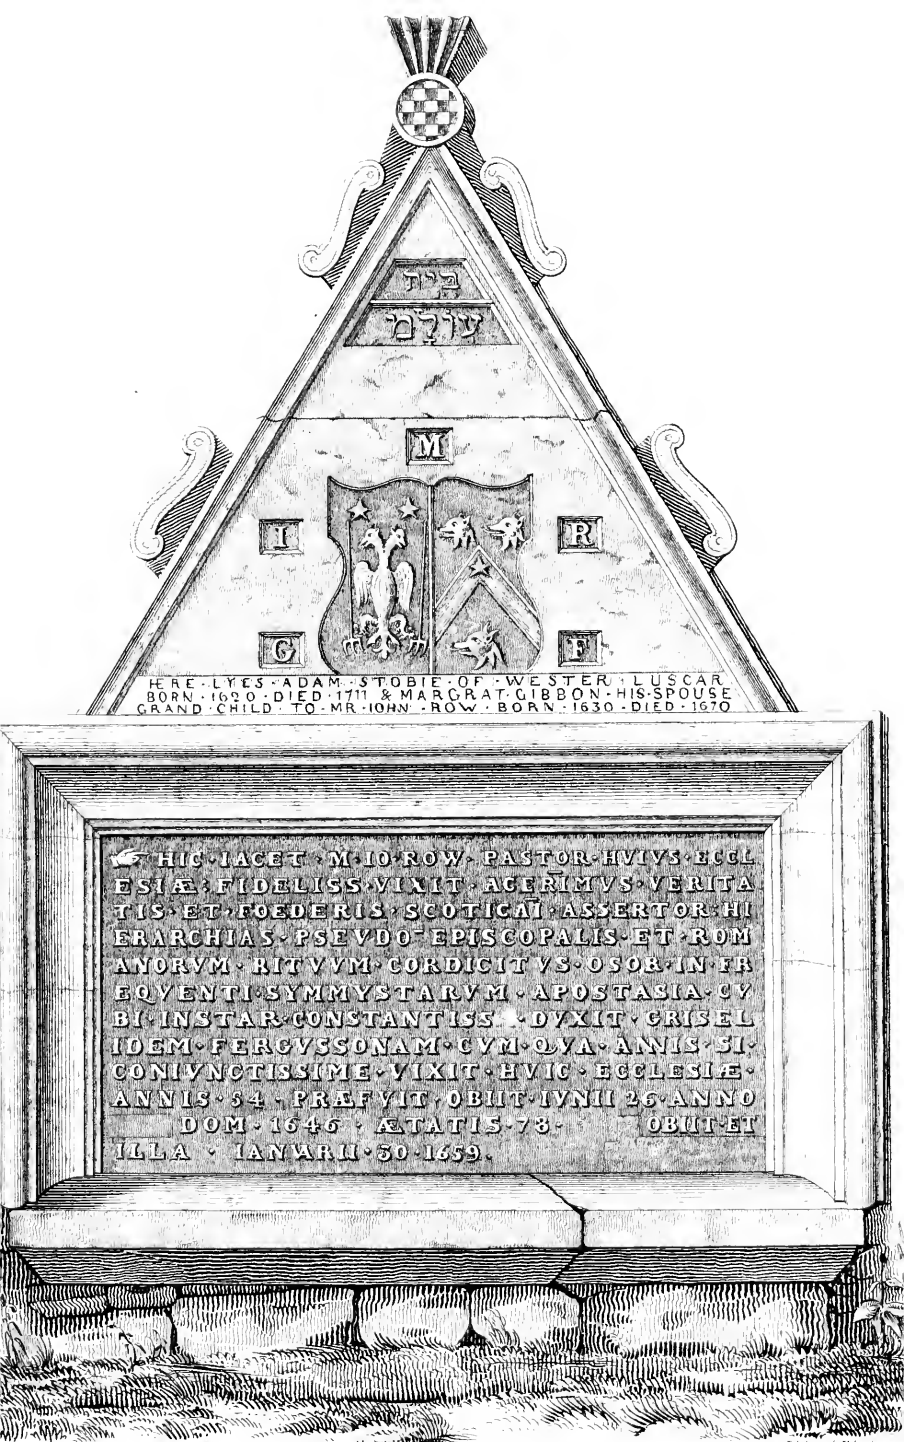 בֵּית
עוֹלָמ
M
I R
G F
HERE · LYES · ADAM · STOBIE · OF · WESTER · LUSCAR
BORN · 1620 · DIED · 1711 & MARGRAT · GIBBON · HIS · SPOUSE
GRAND · CHILD · TO · MR · IOHN · ROW · BORN · 1630 · DIED · 1670
☞ HIC · IACET · M · IO · ROW · PASTOR · HVIVS · ECCL
ESIÆ : FIDELISS · VIXIT · ACERIMVS · VERITA
TIS · ET · FOEDERIS · SCOTICAI · ASSERTOR · HI
ERARCHIAS · PSEVDO-EPISCOPALIS · ET · ROM
ANORVM · RITVVM · CORDICITVS · OSOR · IN · FR
EQVENTI · SYMMYSTARVM · APOSTASIA · CV
BI · INSTAR · CONSTANTISS · DVXIT · GRISEL
IDEM · FERGVSSONAM · CVM · QVA · ANNIS · 51 ·
CONIVNCTISSIME · VIXIT · HVIC · ECCLESIÆ ·
ANNIS · 54 · PRÆFVIT · OBIIT · IVNII 26 · ANNO
DOM · 1646 · ÆTATIS · 78 · OBIIT · ET
ILLA · IANWRII · 30 · 1659 .